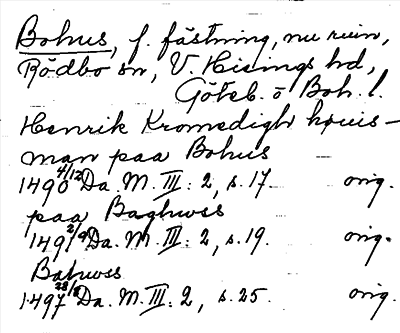 Bohus, f. fästning, nu ruin,
Rödbo sn, V. Hisings hd,
Göteb. o Boh. l.
Henrik Kromedigh høuis-
man paa Bohus
1490 4/12 Da. M. III: 2, s. 17. orig.
paa Baghwss
149 Da. M. III: 2, s. 19. orig.
Bahwss
1497 Da. M. III: 2, s. 25. orig.